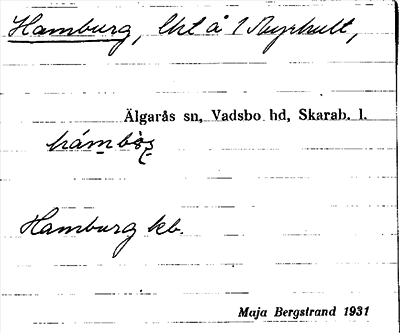 Hamburg, lht å 1 Myrhult,
Älgarås sn, Vadsbo hd, Skarab. l.
Hamburg kb.
Maja Bergstrand 1931